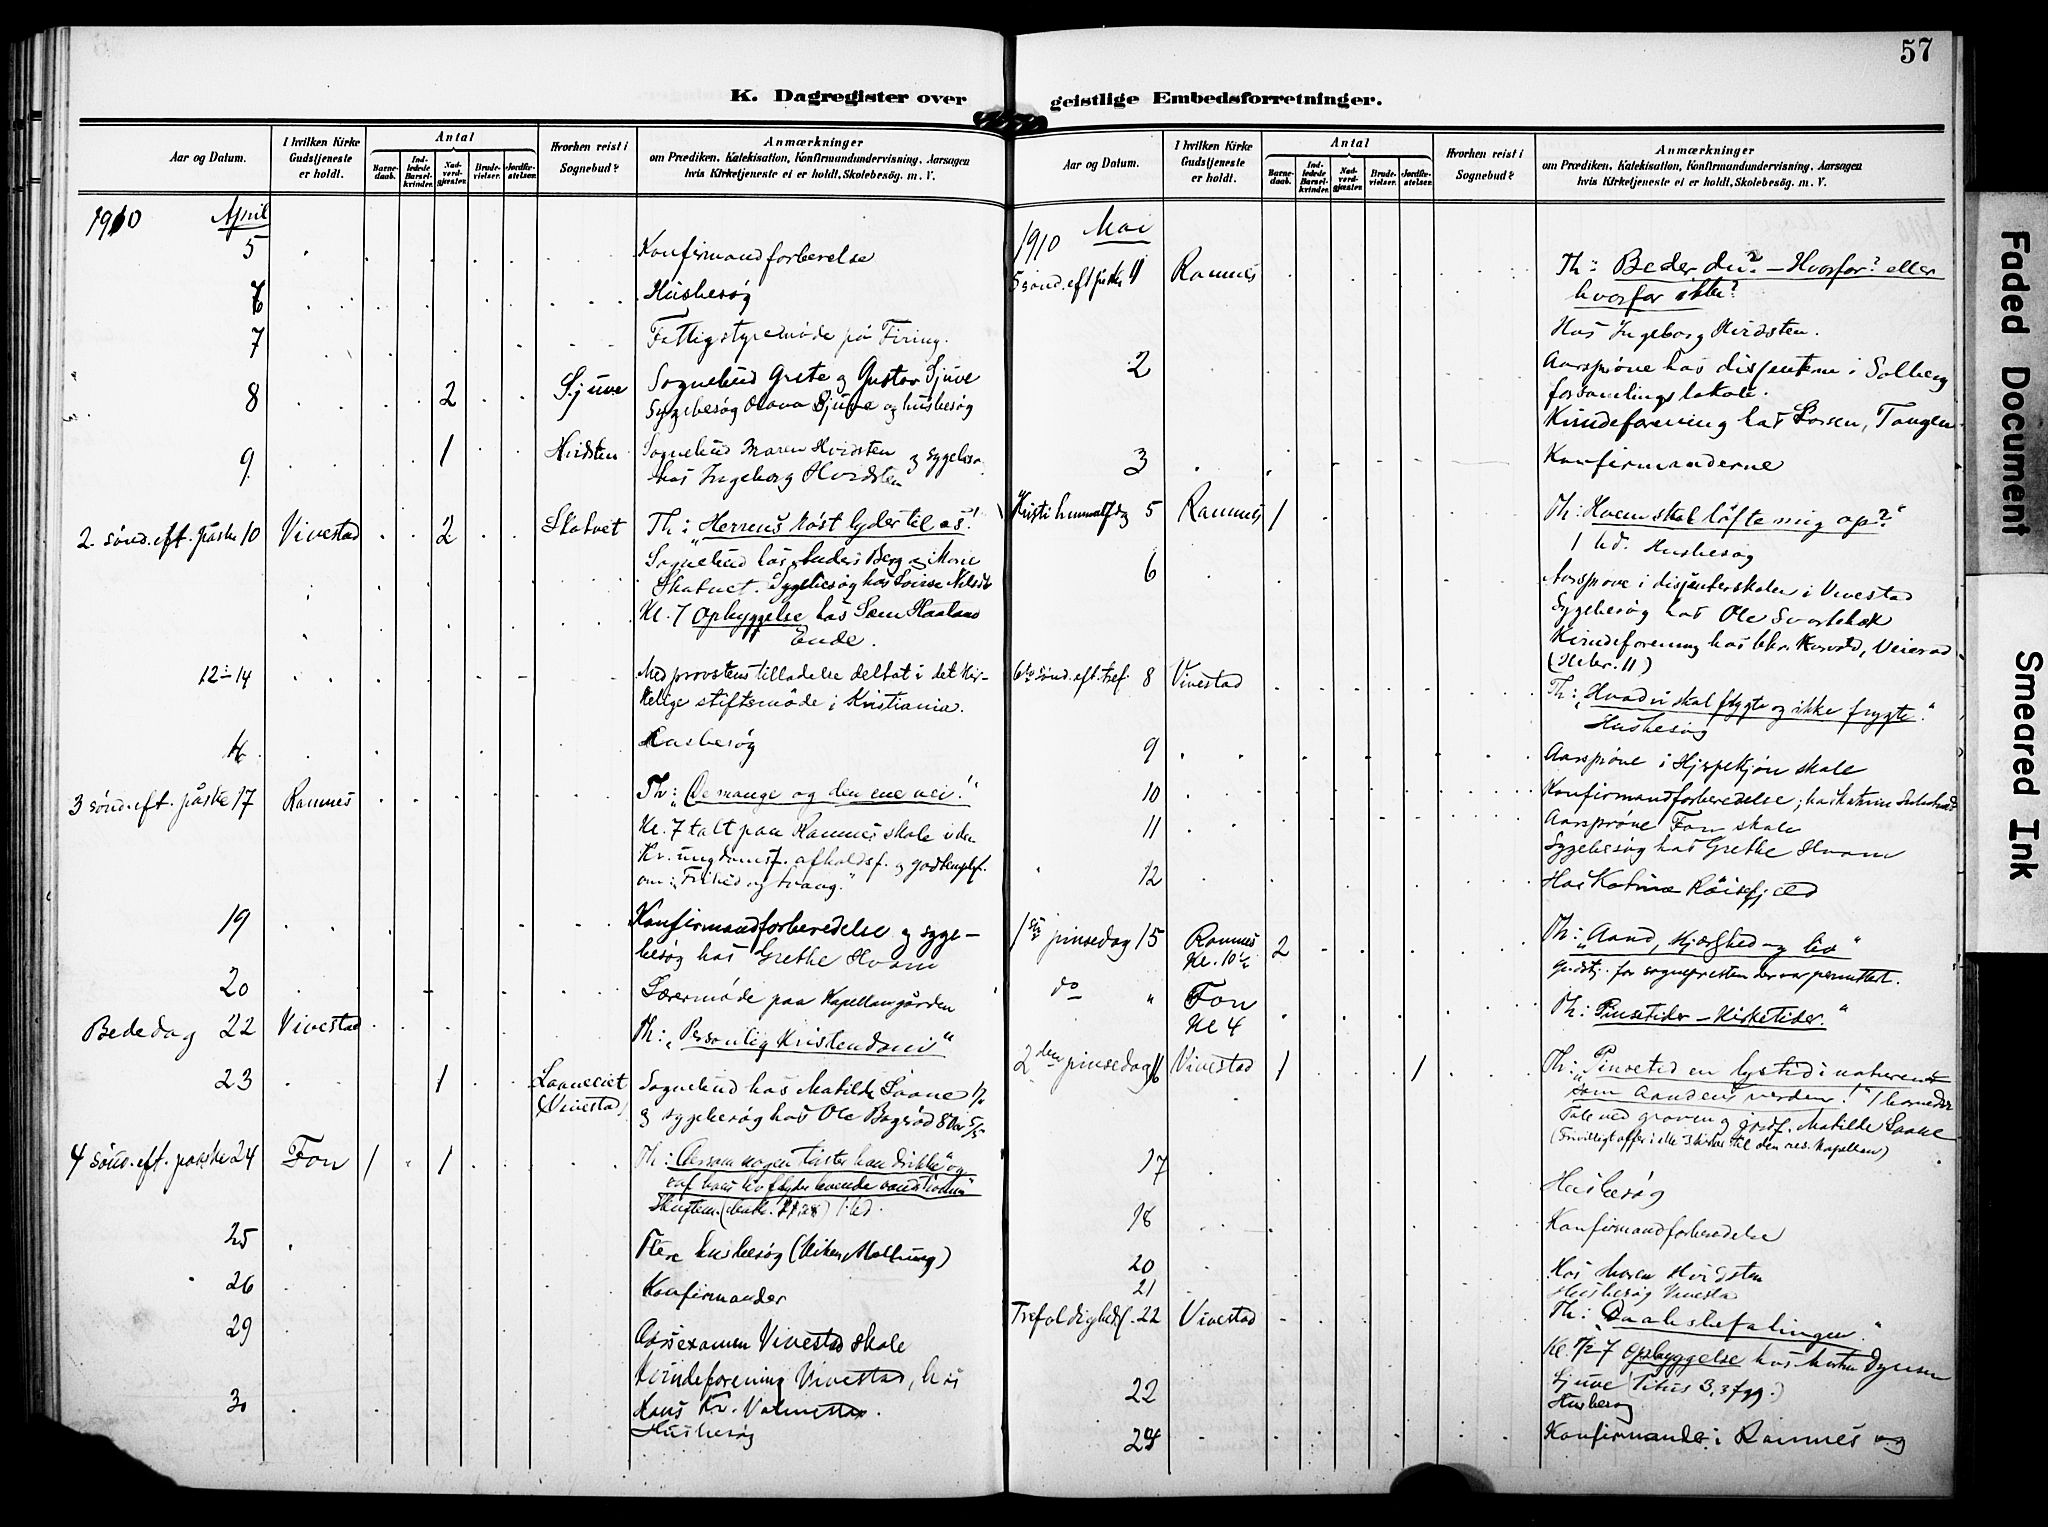 57
K. Dagregister over geistlige Embedsforretninger.
Aar og Datum.
I hvilken Kirke Gudstjeneste er holdt.
Antal
Barnedaab.
Indledede Barselkvinder.
Nadverdgjæster.
Brudevielser.
Jordfæstelser.
Hvorhen reist i Sognebud?
Anmærkninger
om Prædiken, Katekisation, Konfirmandundervisning, Aarsagen
hvis Kirketjeneste ei er holdt, Skolebesøg. m. V.
1910 April
5 Konfirmandforberelse
6 Husbesøg
7 Fattigstyremøde på Firing.
8 2 Sjuve Sognebud Grete og Gustav Sjuve
Sygebesøg Olava Sjuve og husbesøg
9 1 Hvidsten Sognebud Maren Hvidsten og sygebesø
hos Ingeborg Hvidsten
2. sønd. eft. påske 10 Vivestad 2 Skatvet Th: "Herrens røst lyder til os!"
Sognebud hos Anders Berg og Marie
Skatvet. Sygebesøg hos
Kl. 7 Opbyggelse hos Sem Haaland
Ende.
12-14 Med provstens tilladelse deltat i det kir-
kelige stiftsmøde i Kristiania.
16 Husbesøg
3 sønd. eft. påske 17 Ramnes Th: "De mange og den ene vei!"
Kl. 7 talt paa Ramnes skole i den
kr. ungdomsf. afholdsf. og godtemplf.
om: "Frihed og tvang."
19 Konfirmandforberedelse og syge-
besøg hos Grethe Hvam
20 Lærermøde paa Kapellangården
Bededag 22 Vivestad Th: "Personlig Kristendom"
23 1 Laaneeiet Sognebud hos Matilde Laane
(Vivestad) og sygebesøg hos Ole Bogsrød
4 sønd. eft. paaske 24 Fon 1 1 Th: "Dersom nogen tørster han drikke" og
"af hans liv flyder levende vandstrømme"
1 hd.
25 Flere husbesøg
26 Konfirmander
29 Aarsexamen Vivestad skole
Kvindeforening Vivestad, hos
30 Hans Kr. Valmestad.
Husbesøg
Aar og Datum.
I hvilken Kirke Gudstjeneste er holdt.
Antal
Barnedaab.
Indledede Barselkvinder.
Nadverdgjæster.
Brudevielser.
Jordfæstelser.
Hvorhen reist i Sognebud?
Anmærkninger
om Prædiken, Katekisation, Konfirmandundervisning, Aarsagen
hvis Kirketjeneste ei er holdt, Skolebesøg. m. V.
1910 Mai
5 sønd. eft. påske 1 Ramnes Th: Beder du? – Hvorfor? eller
hvorfor ikke?
Hos Ingeborg Hvidsten.
2 Aarsprøve hos dissenterne i Solberg
forsamlingslokale.
Kvindeforening hos Larsen, Tangen
3 Konfirmanderne
Kristi himmelfdg 5 Ramnes 1 Th: "Hvem skal løfte mig op?"
1 hd. Husbesøg
6 Aarsprøve i dissenterskolen i Vivestad
Sygebesøg hos Ole Svartebæk
Kvindeforening hos
(Hebr. 11)
6te sønd. eft. tref. 8 Vivestad Th: "Hvad vi skal frygte og ikke frygte."
Husbesøg
9 Aarsprøve i Hjerpekjøn skole
10 Konfirmandforberedelse; hos Katrine
11 Aarsprøve Fon skole
Sygebesøg hos Grethe Hvam
12 Hos Katrine Röisfjeld
1ste pinsedag 15 Ramnes 2 Th: "Aand, kjærlighed og liv"
Kl. 10 1/2 Gudstj. for sognepresten der var permittert.
do " Fon Th: "Pinsetider – Kirketider."
Kl 4
2den pinsedag 16 Vivestad 1 1 Th: "Pinsetid en lystid i naturens
som aandens verden!" 1 barnedåb
Tale ved graven og jordf. Matilde Laane
(Frivilligt offer i alle 3 kirker til den res. kapellan)
17 Husbesøg
18 Konfirmandforberedelse
20 Hos Maren Hvidsten
21 Husbesøg Vivestad
Trefoldighedsf. 22 Vivestad Th: "Daabsbefalingen."
Kl. 1/2 7 Opbyggelse hos
22 Sjuve (Titus 3, 3 fgg.)
Husbesøg
24 Konfirmander i Ramnes og
Faded Document
Smeared Ink